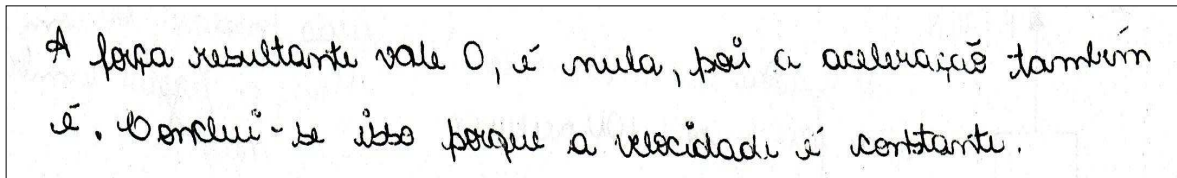 A força resultante vale 0, é nula, pois a aceleração também
é. Conclui-se isso porque a velocidade é constante.